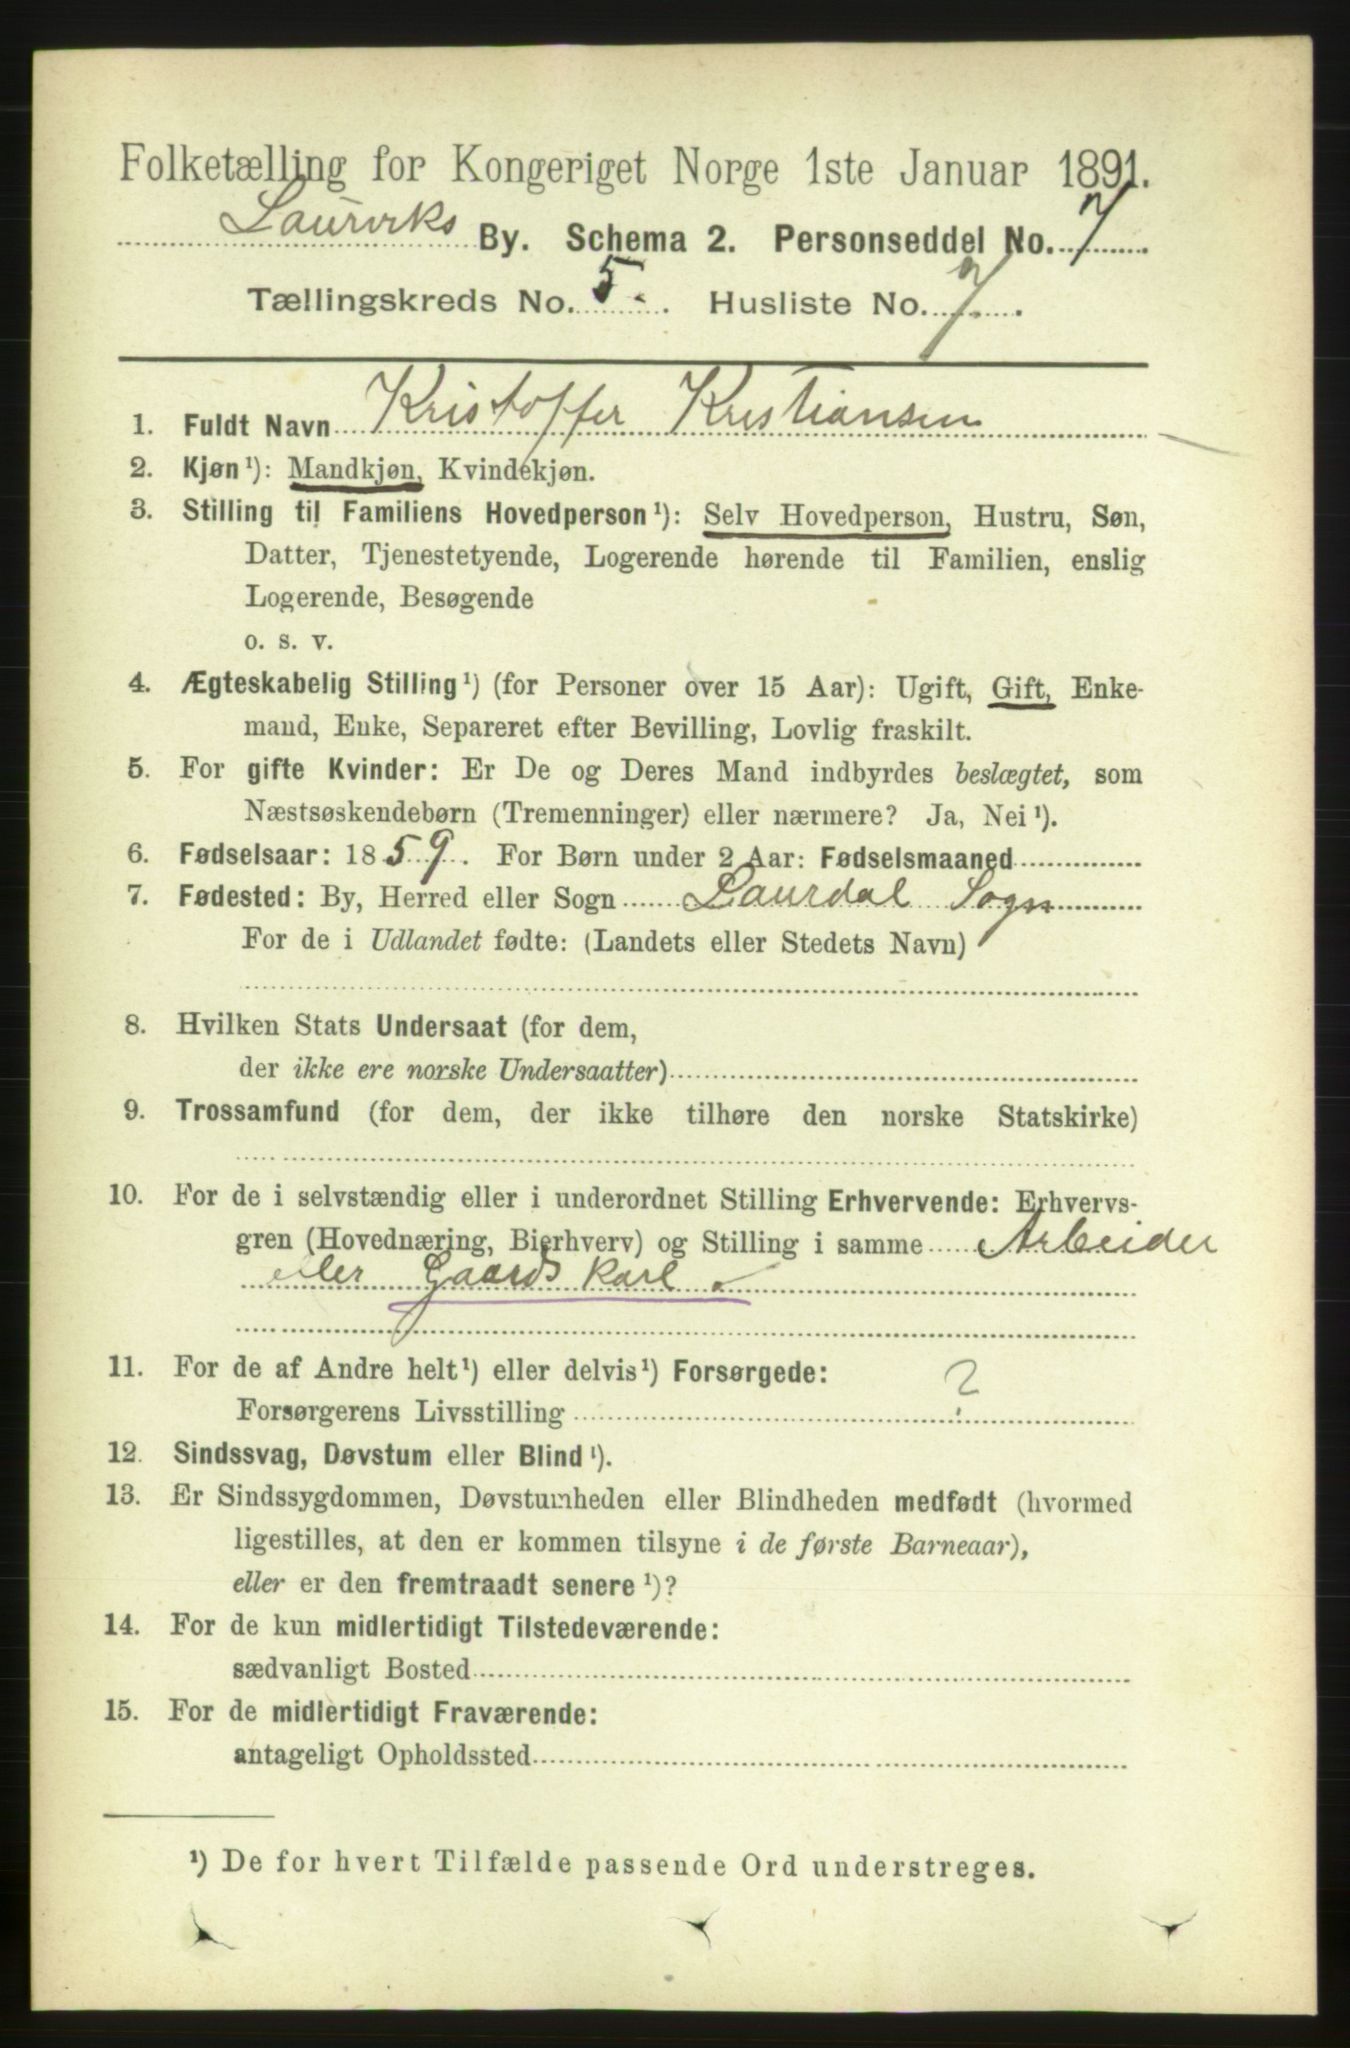 Folketælling for Kongeriget Norge 1ste Januar 1891.
Laurviks By. Schema 2. Personseddel No. 7.
Tællingskreds No. 5. Husliste No. 7.
1. Fuldt Navn Kristoffer Kristiansen
2. Kjøn¹): Mandkjøn, Kvindekjøn.
3. Stilling til Familiens Hovedperson¹): Selv Hovedperson, Hustru, Søn,
Datter, Tjenestetyende, Logerende hørende til Familien, enslig
Logerende, Besøgende
o. s. v.
4. Ægteskabelig Stilling¹) (for Personer over 15 Aar): Ugift, Gift, Enke-
mand, Enke, Separeret efter Bevilling, Lovlig fraskilt.
5. For gifte Kvinder: Er De og Deres Mand indbyrdes beslægtet, som
Næstsøskendebørn (Tremenninger) eller nærmere? Ja, Nei¹).
6. Fødselsaar: 1859. For Børn under 2 Aar: Fødselsmaaned
7. Fødested: By, Herred eller Sogn Laurdal Sogn
For de i Udlandet fødte: (Landets eller Stedets Navn)
8. Hvilken Stats Undersaat (for dem,
der ikke ere norske Undersaatter)
9. Trossamfund (for dem, der ikke tilhøre den norske Statskirke)
10. For de i selvstændig eller i underordnet Stilling Erhvervende: Erhvervs-
gren (Hovednæring, Bierhverv) og Stilling i samme Arbeider
eller Gaards karl
11. For de af Andre helt¹) eller delvis¹) Forsørgede:
Forsørgerens Livsstilling ?
12. Sindssvag, Døvstum eller Blind¹).
13. Er Sindssygdommen, Døvstumheden eller Blindheden medfødt (hvormed
ligestilles, at den er kommen tilsyne i de første Barneaar),
eller er den fremtraadt senere¹)?
14. For de kun midlertidigt Tilstedeværende:
sædvanligt Bosted
15. For de midlertidigt Fraværende:
antageligt Opholdssted
¹) De for hvert Tilfælde passende Ord understreges.